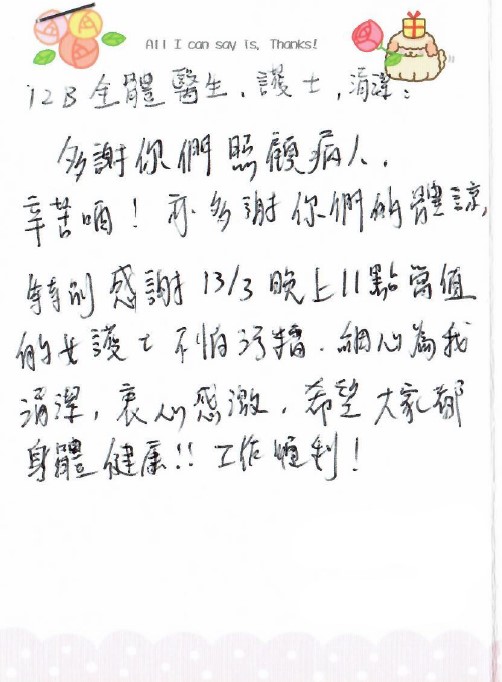 All I can say is, Thanks!
12B 全體醫生，護士，清潔：
多謝你們照顧病人，
辛苦哂！亦多謝你們的體諒，
特別感謝 13/3 晚上11點當值
的女護士不怕污糟，細心為我
清潔，衷心感激，希望大家都
身體健康!! 工作順利！